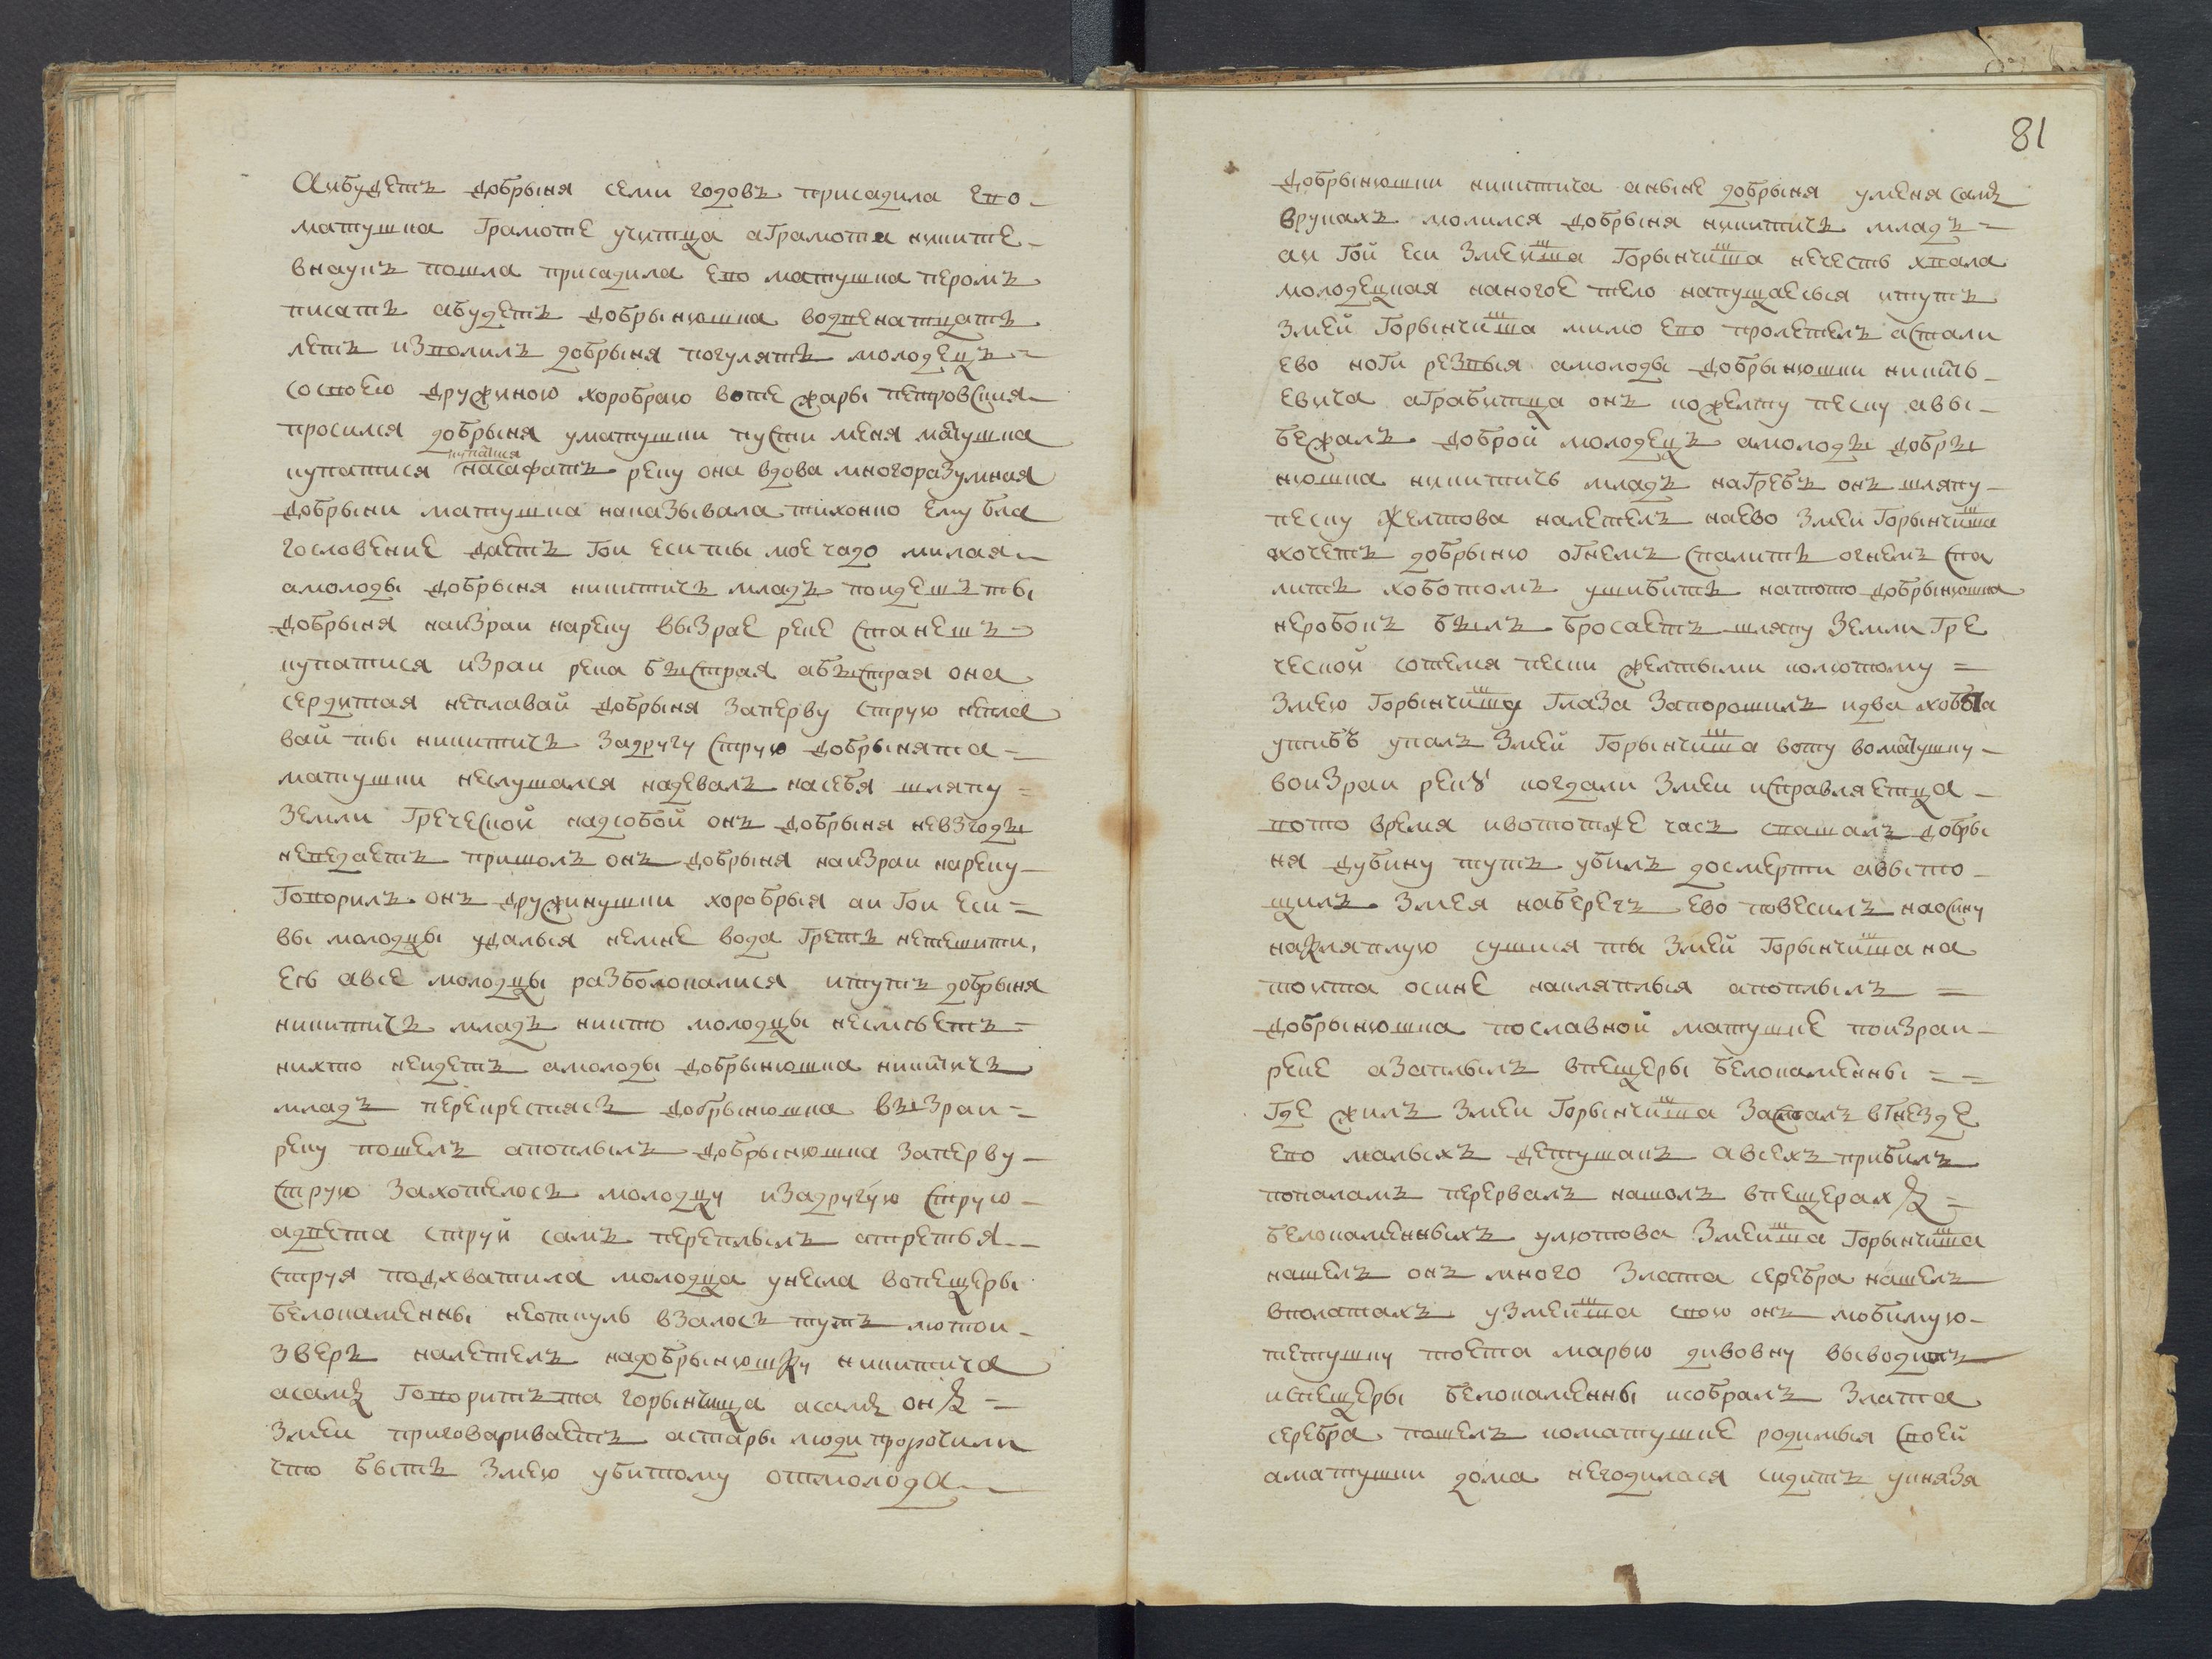 Аибудетъ добрыня семи годовъ присадила ево
матушка грамоте учитца аграмота никите
внаукъ пошла присадила ево матушка перомъ
писать абудетъ добрынюшка водвенатцать
летъ изволилъ добрыня погулять молодецъ
состоею дружиною хороброю воте жары петровския
просился добрыня уматушки пусти меня матушка
купатися
купатися насафатъ реку она вдова многоразумная
добрыни матушка наказывала тихонко ему бла
гословение даетъ гои еси ты мое чадо милая
амолоды добрыня никитичъ младъ поидешъ ты
добрыня наизраи нареку выграе реке станешъ
купатися израи река быстрая абыстрая она
сердитая неплавай добрыня заперву струю непла
вай ты никитичъ задругу струю добрынята
матушки неслушался надевалъ насебя шляпу
земли греческой надсобой онъ добрыня невзгоды
неведаетъ пришолъ онъ добрыня наизраи нареку
говорилъ онъ дружинушки хоробрыя аи гои еси
вы молодцы удалыя немне вода греть нетешити
еь авсе молодцы разболокалися итутъ добрыня
никитичъ младъ никто молодцы несмеетъ
нихто неидетъ амолоды добрынюшка никитичъ
младъ перекрестясъ добрынюшка въизраи
реку пошелъ апоплылъ добрынюшка заперву
струю захотелосъ молодцу изадругую струю
адвета струй самъ переплылъ атретья
струя подхватила молодца унесла вопещеры
белокаменны неоткуль взалосъ тутъ лютои
зверъ налетелъ надобрынюшку никитича
асамъ говоритъ та горынчища асамъ онъ
змеи приговариваетъ астары люди пророчили
что быть змею убитому отмолода
81
добрынюшки никитича аныне добрыня уменя самъ
врукахъ молился добрыня никитичъ младъ
аи гой еси змеища горынчища нечесть хвала
молодецкая наногое тело напущаесься итутъ
змей горынчища мимо ево пролетелъ астали
ево ноги резвыя амолоды добрынюшки никить
евича аграбитца онъ кожелту песку авы
бежалъ доброй молодецъ амолоды добры
нюшка никитичь младъ нагребъ онъ шляпу
песку желтова налетелъ наево змеи горынчища
ахочетъ добрыню огнемъ спалить огнемъ спа
лить хоботомъ ушибить натото добрынюшка
неробокъ былъ бросаетъ шляпу земли гре
ческой сотемя пески желтыми колютому
змею горынчищу глаза запорошилъ идва хобота
ушибъ упалъ змей горынчища воту воматушку
воизраи реку когдали змеи исправляетца
вото время ивототже часъ сташалъ добры
ня дубину тутъ убилъ досмерти авыто
щилъ змея наберегъ ево повесилъ наосину
накляплую сушися ты змей горынчища на
тоита осине накляплыя апоплылъ
добрынюшка пославной матушке поизраи
реке азаплылъ впещеры белокаменны
где жилъ змеи горынчища засталъ вгнезде
ево малыхъ детушакъ авсехъ прибилъ
попаламъ перервалъ нашолъ впещерахъ
белокаменныхъ улютова змеища горынчища
нашелъ онъ много злата серебра нашелъ
вполатахъ узмеища свою онъ любимую
тетушку тоета марью дивовну выводитъ
испещеры белокаменны исобралъ злата
серебра пошелъ коматушке родимыя своей
аматушки дома негодилася сидитъ укнязя